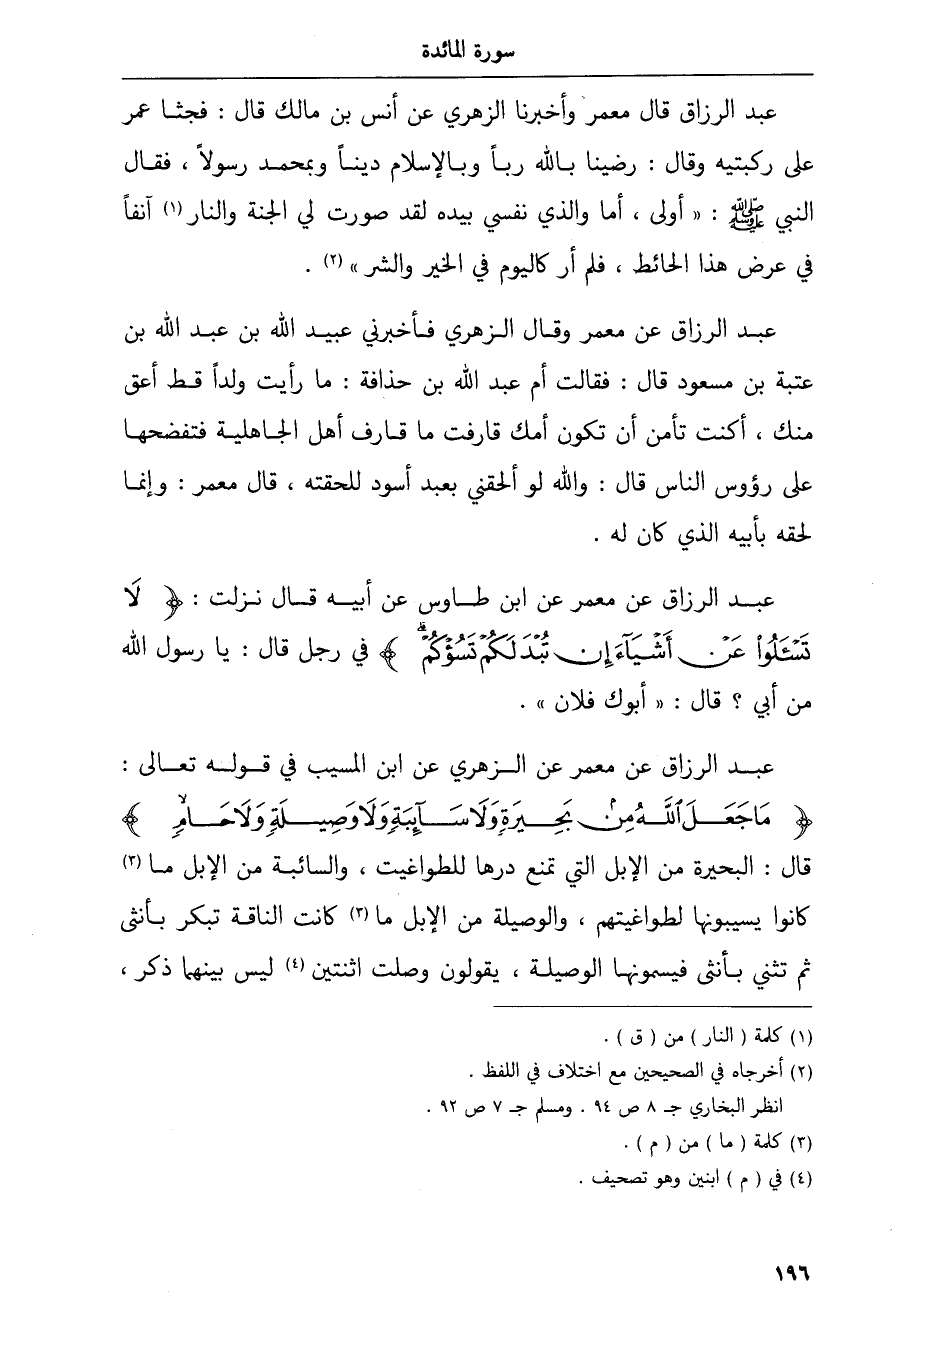 سورة المائدة
عبد الرزاق قال معمر وأخبرنا الزهري عن أنس بن مالك قال : فجثا عمر
على ركبتيه وقال : رضينا بالله رباً وبالإسلام ديناً وبمحمد رسولاً ، فقال
النبي ﷺ : « أولى ، أما والذي نفسي بيده لقد صورت لي الجنة والنار (١) آنفاً
في عرض هذا الحائط ، فلم أر كاليوم في الخير والشر » (٢) .
عبد الرزاق عن معمر وقال الزهري فأخبرني عبيد الله بن عبد الله بن
عتبة بن مسعود قال : فقالت أم عبد الله بن حذافة : ما رأيت ولداً قط أعق
منك ، أكنت تأمن أن تكون أمك قارفت ما قارف أهل الجاهلية فتفضحها
على رؤوس الناس قال : والله لو ألحقني بعبد أسود للحقته ، قال معمر : وإنما
لحقه بأبيه الذي كان له .
عبد الرزاق عن معمر عن ابن طاوس عن أبيه قال نزلت : ﴿ لَا
تَسْـَٔلُوا۟ عَنْ أَشْيَآءَ إِن تُبْدَ لَكُمْ تَسُؤْكُمْ ﴾ في رجل قال : يا رسول الله
من أبي ؟ قال : « أبوك فلان » .
عبد الرزاق عن معمر عن الزهري عن ابن المسيب في قوله تعالى :
﴿ مَا جَعَلَ ٱللَّهُ مِنۢ بَحِيرَةٍ وَلَا سَآئِبَةٍ وَلَا وَصِيلَةٍ وَلَا حَامٍ ﴾
قال : البحيرة من الإبل التي تمنع درها للطواغيت ، والسائبة من الإبل ما (٣)
كانوا يسيبونها لطواغيتهم ، والوصيلة من الإبل ما (٣) كانت الناقة تبكر بأنثى
ثم تثني بأنثى فيسمونها الوصيلة ، يقولون وصلت اثنتين (٤) ليس بينهما ذكر ،
(١) كلمة ( النار ) من ( ق ) .
(٢) أخرجاه في الصحيحين مع اختلاف في اللفظ .
انظر البخاري جـ ٨ ص ٩٤ . ومسلم جـ ٧ ص ٩٢ .
(٣) كلمة ( ما ) من ( م ) .
(٤) في ( م ) ابنين وهو تصحيف .
١٩٦